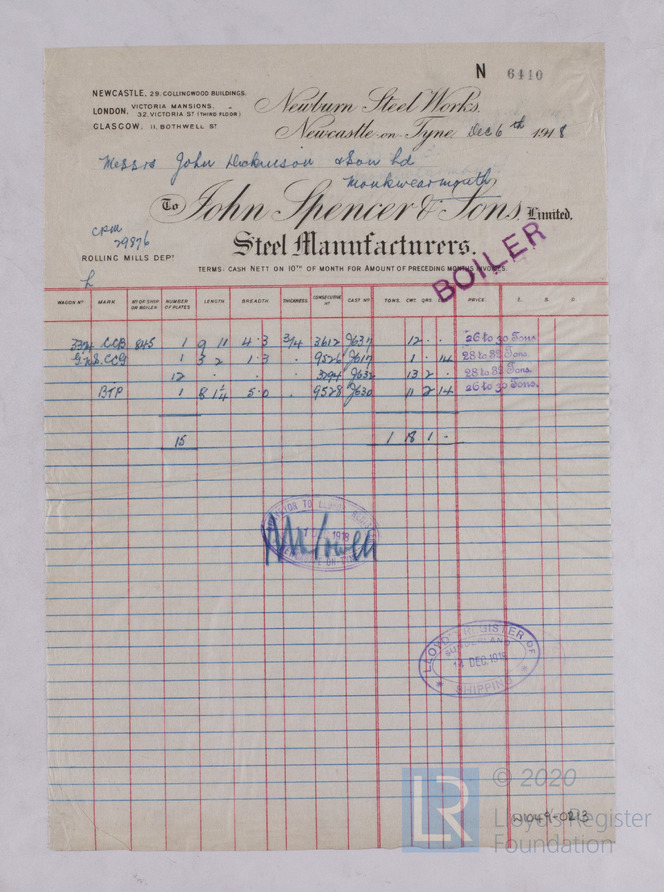 N 6440
NEWCASTLE, 29. COLLINGWOOD BUILDINGS.
LONDON, VICTORIA MANSIONS, 32. VICTORIA ST (THIRD FLOOR)
GLASGOW, 11. BOTHWELL ST
Newburn Steel Works.
Newcastle-on-Tyne Dec 6th 1918
Messrs John Dickinson & Son Ld
Monkwearmouth
To John Spencer & Sons, Limited.
CRM
29876
Steel Manufacturers.
ROLLING MILLS DEPT
TERMS: CASH NETT ON 10TH OF MONTH FOR AMOUNT OF PRECEDING MONTHS INVOICES.
BOILER
WAGON No MARK No OF SHIP OR BOILER NUMBER OF PLATES LENGTH BREADTH THICKNESS CONSECUTIVE No CAST No TONS. CWT. QRS. PRICE. £. S. D
CCB 845 1 9 11 4·3 3/4 3612 12 · · 26 to 30 Tons
CCG 1 3 2 1·3 · 9526 1 · 14 28 to 32 Tons.
12 · · · 3294 13 2 · 28 to 32 Tons.
BTP 1 8 1/4 5·0 · 9528 11 2 14 26 to 30 Tons.
15 1 18 1 -
1918
LLOYD'S REGISTER OF SHIPPING
SUNDERLAND
14 DEC. 1918
LR
© 2020
Lloyd's Register
Foundation
W1049-0213